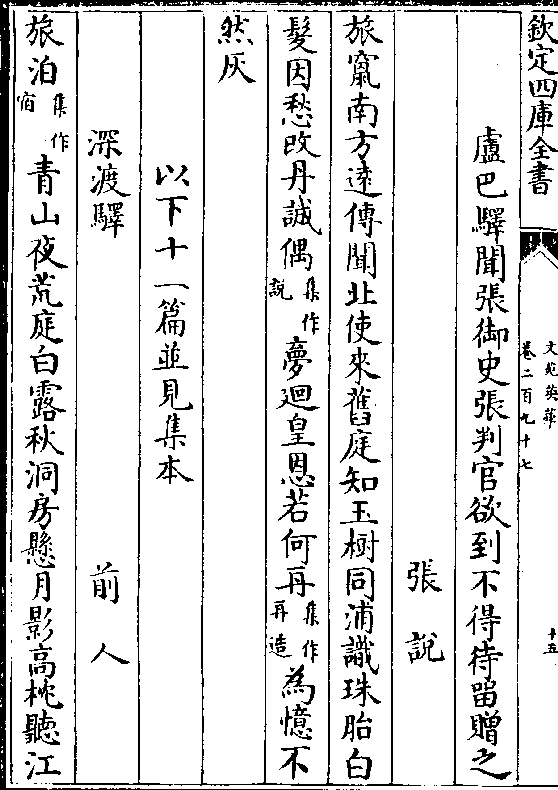 欽定四庫全書
文苑英華
卷二百九十七
十五
盧巴驛聞張御史張判官欲到不得待留贈之
張說
旅竄南方遠傳聞北使來舊庭知玉樹同浦識珠胎白
髮因愁改丹誠偶集作說夢迴皇恩若何再集作再造為憶不
然灰
以下十一篇並見集本
深渡驛 前人
旅泊集作宿青山夜荒庭白露秋洞房懸月影高枕聽江